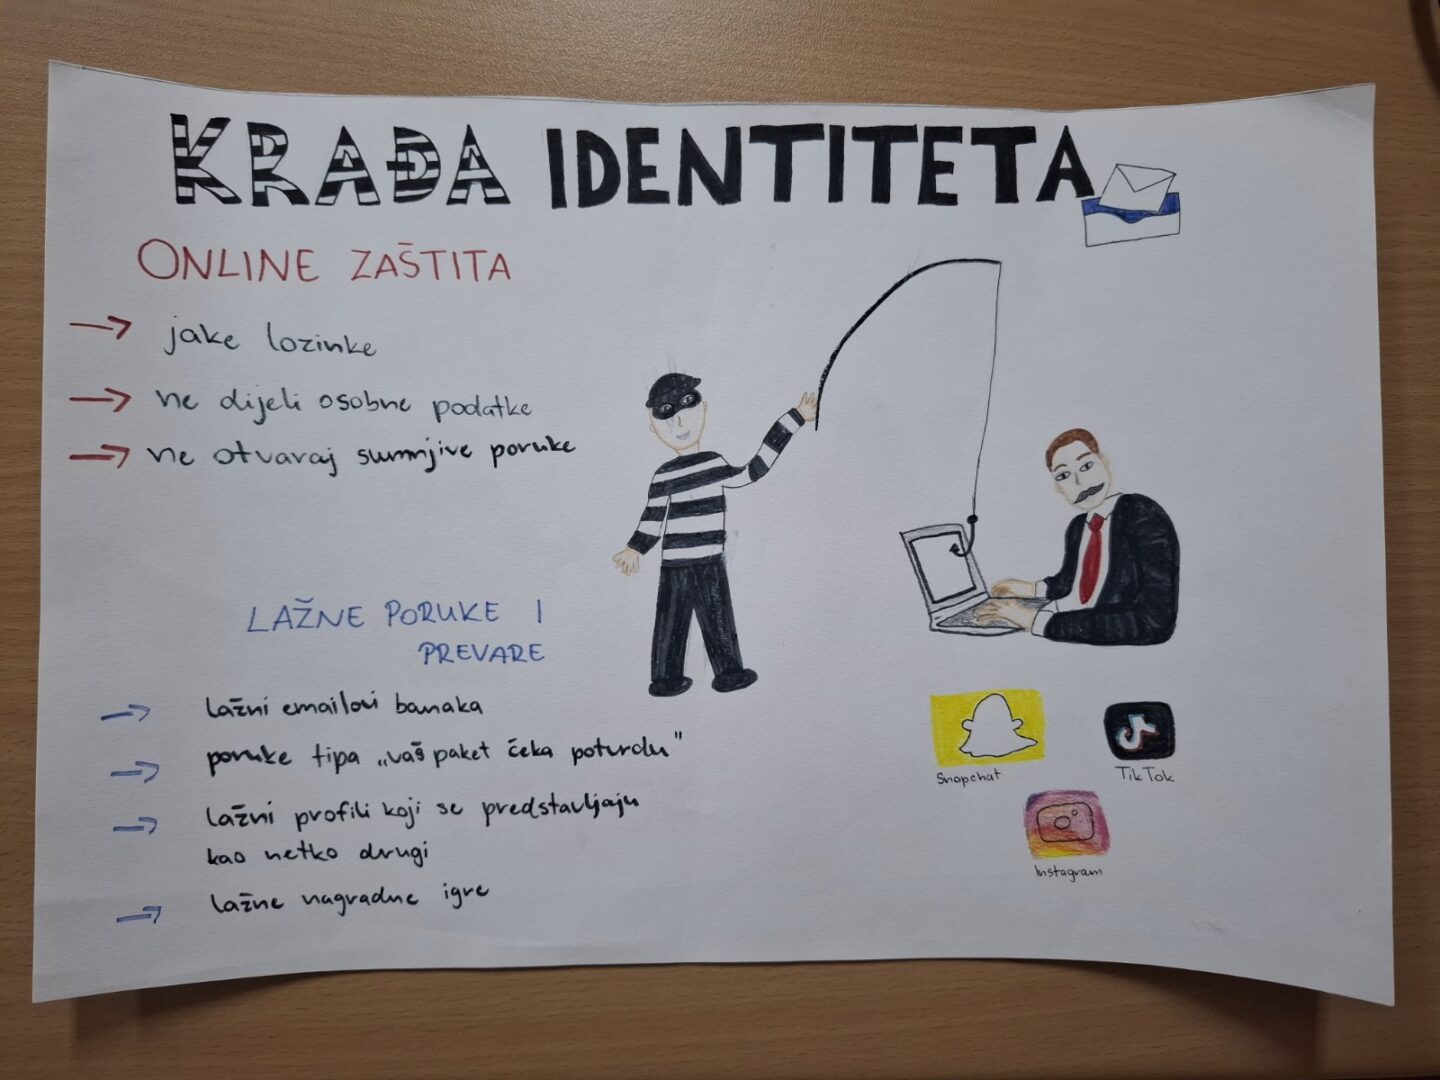 KRAĐA IDENTITETA
ONLINE ZAŠTITA
→ jake lozinke
→ ne dijeli osobne podatke
→ ne otvaraj sumnjive poruke
LAŽNE PORUKE I
PREVARE
→ lažni emailovi banaka
→ poruke tipa „vaš paket čeka potvrdu"
→ lažni profili koji se predstavljaju
kao netko drugi
→ lažne nagradne igre
Snapchat
TikTok
Instagram